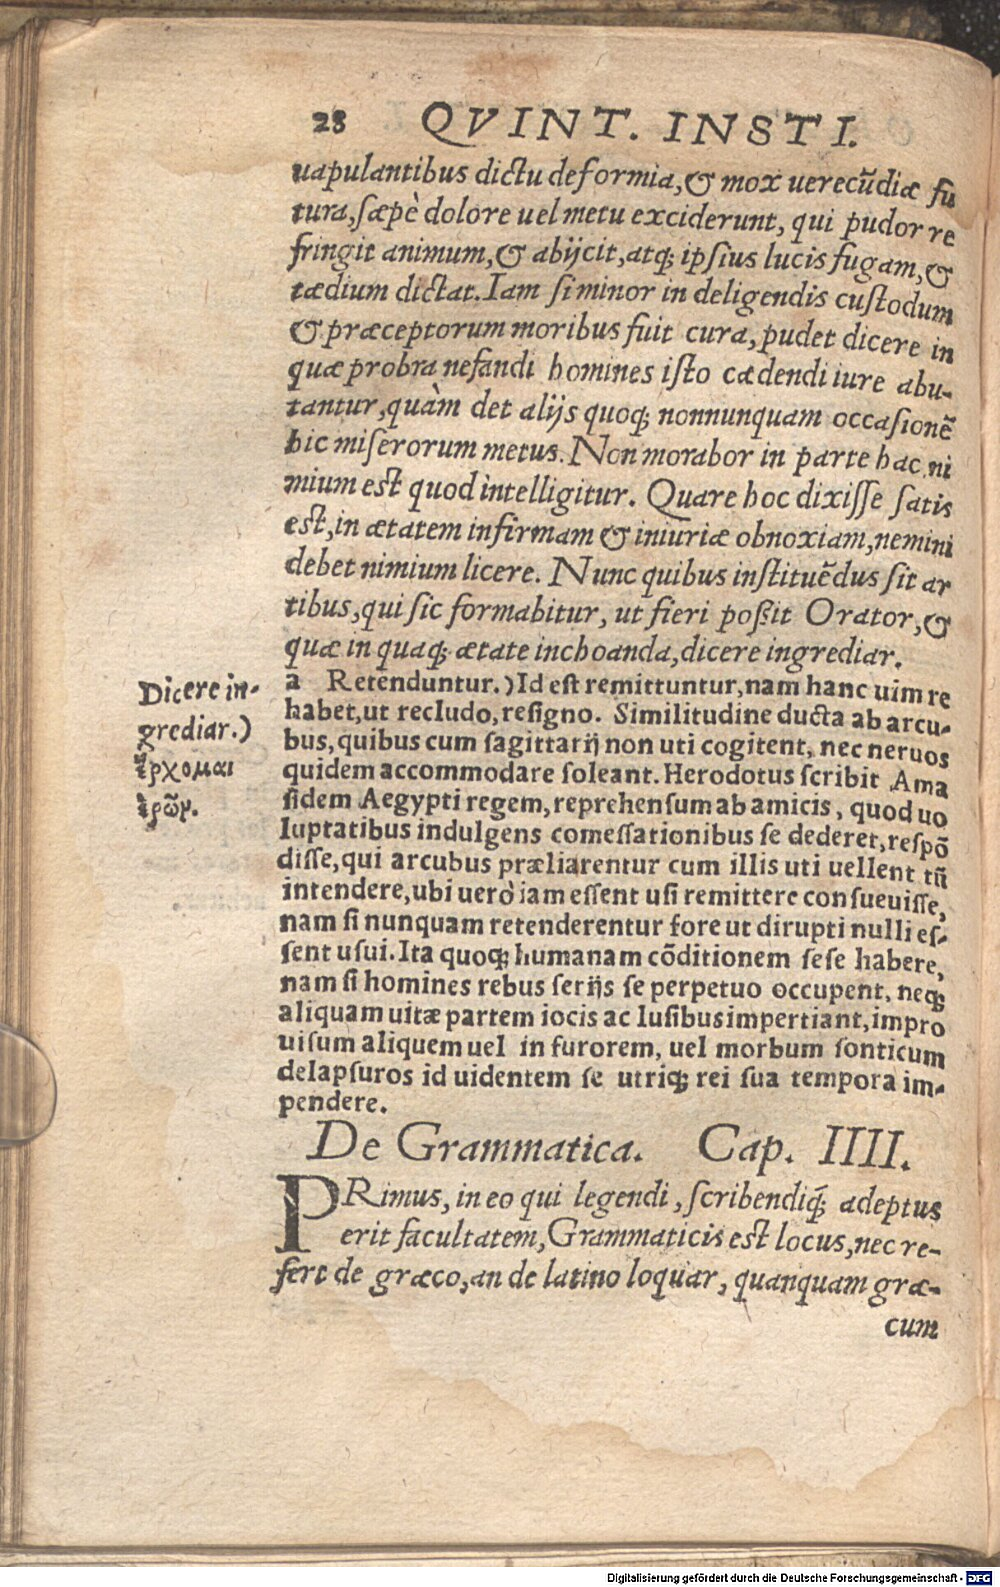 28 QVINT. INSTI.
uapulantibus dictu deformia, & mox uerecũdiæ fu
tura, sæpè dolore uel metu exciderunt, qui pudor re
fringit animum, & abijcit, atq; ipsius lucis fugam, &
tædium dictat. Iam si minor in deligendis custodum
& præceptorum moribus fuit cura, pudet dicere in
quæ probra nefandi homines isto cædendi iure abu-
tantur, quàm det alijs quoq; nonnunquam occasionẽ
hic miserorum metus. Non morabor in parte hac, ni
mium est quod intelligitur. Quare hoc dixisse satis
est, in ætatem infirmam & iniuriæ obnoxiam, nemini
debet nimium licere. Nunc quibus instituẽdus sit ar
tibus, qui sic formabitur, ut fieri poßit Orator, &
quæ in quaq; ætate inchoanda, dicere ingrediar.
Dicere in-
grediar.)
ἔρχομαι
ἐρῶν.
a Retenduntur.) Id est remittuntur, nam hanc uim re
habet, ut recludo, resigno. Similitudine ducta ab arcu-
bus, quibus cum sagittarij non uti cogitent, nec neruos
quidem accommodare soleant. Herodotus scribit Ama
sidem Aegypti regem, reprehensum ab amicis, quod uo
luptatibus indulgens comessationibus se dederet, respõ
disse, qui arcubus præliarentur cum illis uti uellent tũ
intendere, ubi uerò iam essent usi remittere consueuisse,
nam si nunquam retenderentur fore ut dirupti nulli es-
sent usui. Ita quoq; humanam cõditionem sese habere,
nam si homines rebus serijs se perpetuo occupent, neq;
aliquam uitæ partem iocis ac lusibus impertiant, impro
uisum aliquem uel in furorem, uel morbum sonticum
delapsuros id uidentem se utriq; rei sua tempora im-
pendere.
De Grammatica. Cap. IIII.
PRimus, in eo qui legendi, scribendiq; adeptus
erit facultatem, Grammaticis est locus, nec re-
fert de græco, an de latino loquar, quanquam græ-
cum
Digitalisierung gefördert durch die Deutsche Forschungsgemeinschaft - DFG